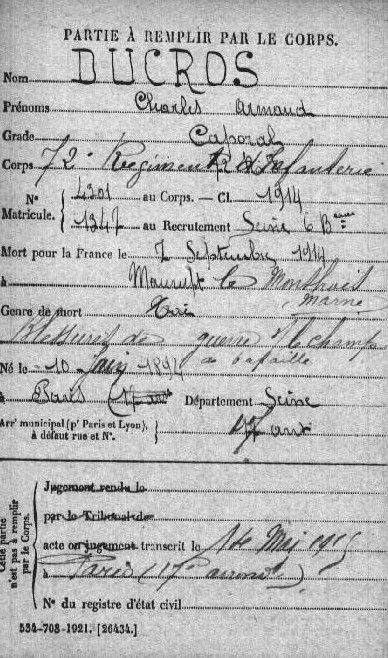 PARTIE À REMPLIR PAR LE CORPS.
Nom DUCROS
Prénoms Charles Armand
Grade Caporal
Corps 72e Régiment d'Infanterie
N° Matricule. 4301 au Corps. — Cl. 1914
1347 au Recrutement Seine 6 Beau
Mort pour la France le 7 Septembre 1914
à Maurupt le Monthoit
Marne
Genre de mort Tué
Blessures de guerre champ
de bataille
Né le 10 1894
à Paris (17 arrt) Département Seine
Arrt municipal (pr Paris et Lyon), à défaut rue et N°. 17 arrt
Cette partie n'est pas à remplir par le Corps.
Jugement rendu le
par le Tribunal de
acte ou jugement transcrit le 14 Mai 1915
à Paris (17e arrond)
N° du registre d'état civil
534-708-1921. [26434.]